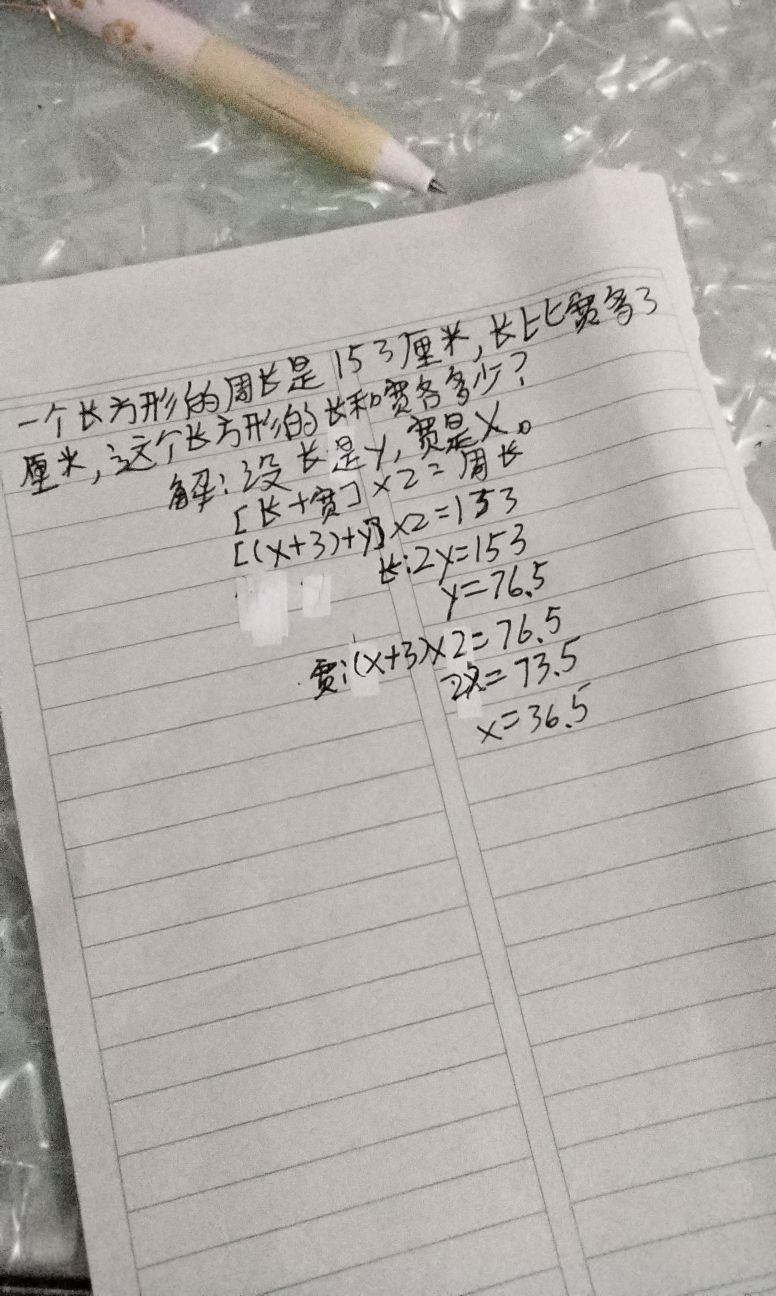 一个长方形的周长是153厘米,长比宽多3
厘米,这个长方形的长和宽各多少?
解:设长是y,宽是x。
[长+宽]×2=周长
[(x+3)+y]×2=153
长:2y=153
y=76.5
宽:(x+3)×2=76.5
2x=73.5
x=36.5